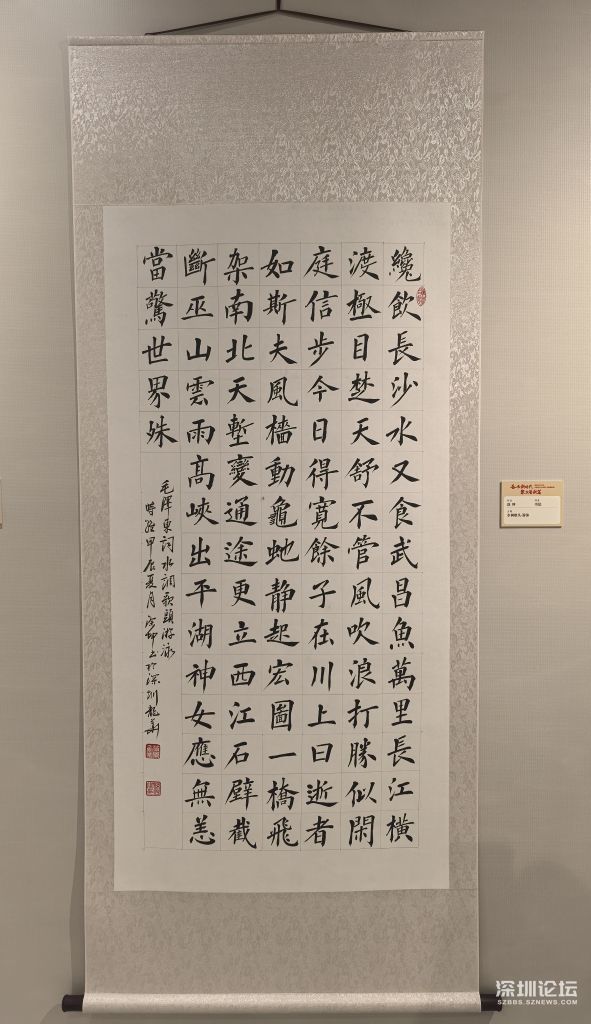 纔飲長沙水又食武昌魚萬里長江橫
渡極目楚天舒不管風吹浪打勝似閑
庭信步今日得寬餘子在川上曰逝者
如斯夫風檣動龜虵静起宏圖一橋飛
架南北天塹變通途更立西江石壁截
斷巫山雲雨高峽出平湖神女應無恙
當驚世界殊
毛澤東詞水調歌頭游泳
時維甲辰夏月 書於深圳龍華
深圳论坛
SZBBS.SZNEWS.COM